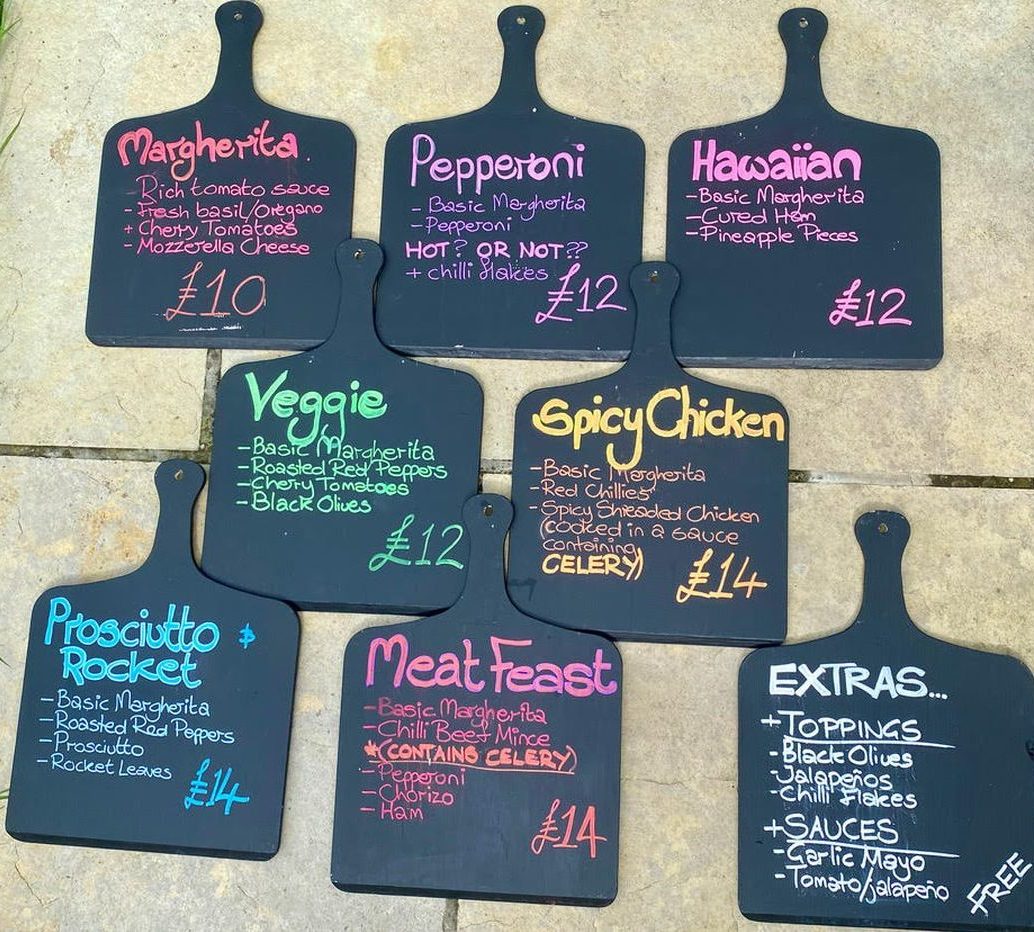 Margherita
- Rich tomato sauce
- Fresh basil/Oregano
+ Cherry Tomatoes
- Mozzerella Cheese
£10
Pepperoni
- Basic Margherita
- Pepperoni
HOT? OR NOT??
+ chilli flakes
£12
Hawaiian
- Basic Margherita
- Cured Ham
- Pineapple Pieces
£12
Veggie
- Basic Margherita
- Roasted Red Peppers
- Cherry Tomatoes
- Black Olives
£12
Spicy Chicken
- Basic Margherita
- Red Chillies
- Spicy Shreaded Chicken
(cooked in a sauce
containing
CELERY)
£14
Prosciutto &
Rocket
- Basic Margherita
- Roasted Red Peppers
- Prosciutto
- Rocket Leaves
£14
Meat Feast
- Basic Margherita
- Chilli Beef Mince
*(CONTAINS CELERY)
- Pepperoni
- Chorizo
- Ham
£14
EXTRAS...
+ TOPPINGS
- Black Olives
- Jalapeños
- Chilli flakes
+ SAUCES
- Garlic Mayo
- Tomato/jalapeño
FREE